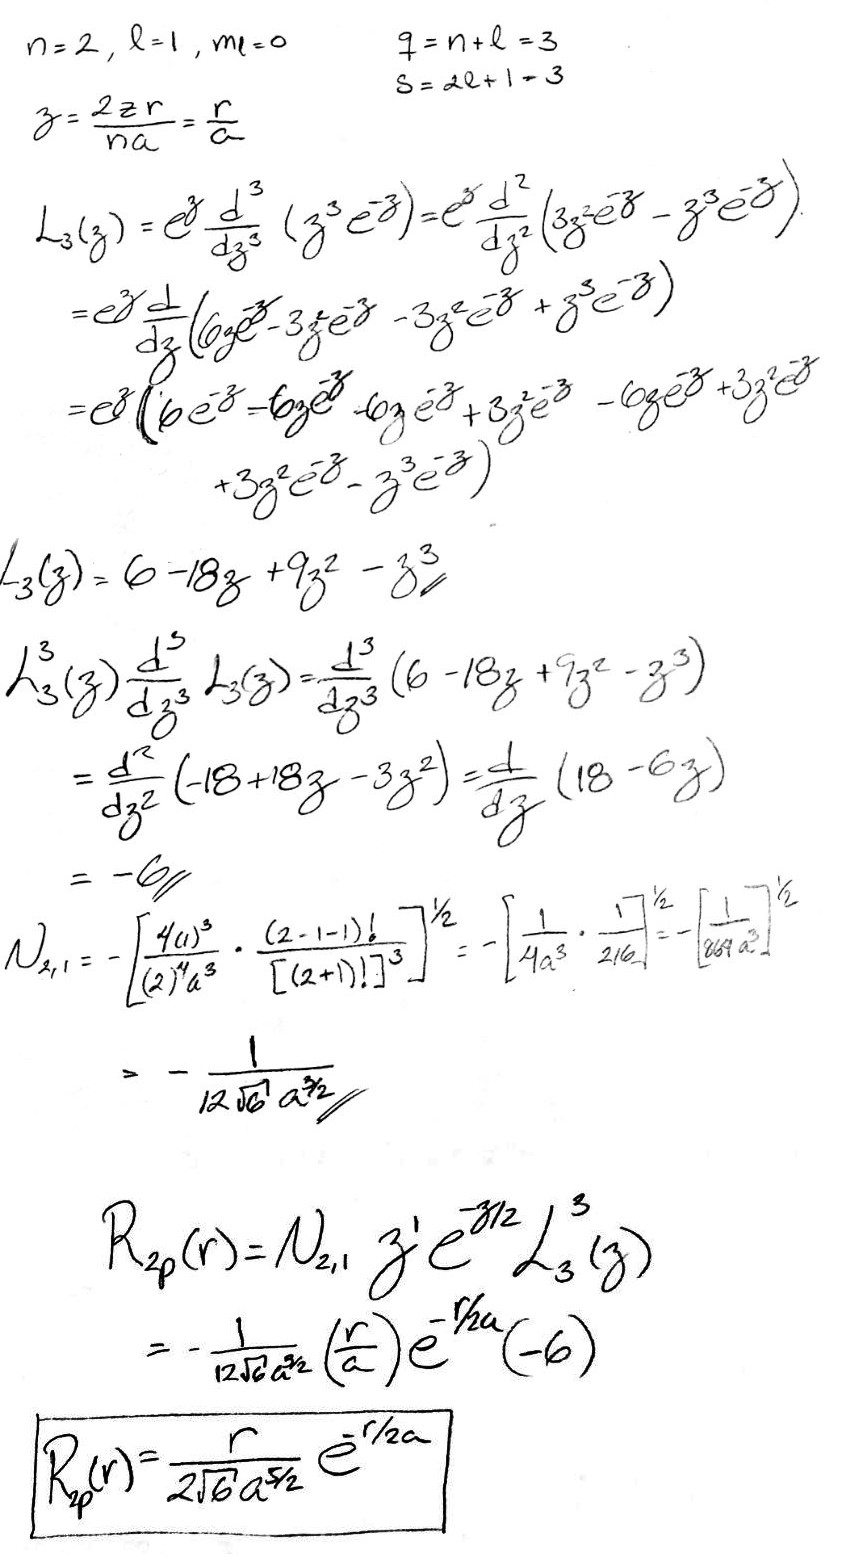 n=2, ℓ=1, mℓ=0 q=n+ℓ=3
s=2ℓ+1=3
z = 2Zr/na = r/a
L₃(z) = e^z d³/dz³ (z³e^-z) = e^z d²/dz² (3z²e^-z - z³e^-z)
= e^z d/dz (6ze^-z - 3z²e^-z - 3z²e^-z + z³e^-z)
= e^z (6e^-z - 6ze^-z - 6ze^-z + 3z²e^-z - 6ze^-z + 3z²e^-z
+ 3z²e^-z - z³e^-z)
L₃(z) = 6 - 18z + 9z² - z³
L₃³(z) d³/dz³ L₃(z) = d³/dz³ (6 - 18z + 9z² - z³)
= d²/dz² (-18 + 18z - 3z²) = d/dz (18 - 6z)
= -6
N₂,₁ = -[4(1)³/(2)⁴a³ · (2-1-1)!/[(2+1)!]³]^1/2 = -[1/4a³ · 1/216]^1/2 = -[1/864a³]^1/2
= - 1/12√6 a^3/2
R₂p(r) = N₂,₁ z¹ e^-z/2 L₃³(z)
= - 1/12√6 a^3/2 (r/a) e^-r/2a (-6)
R₂p(r) = r/2√6 a^5/2 e^-r/2a